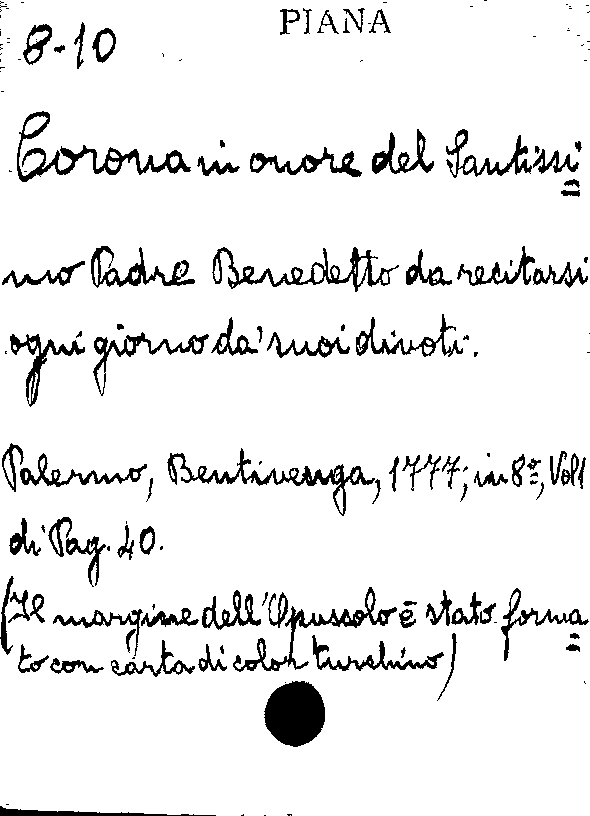 PIANA
8-10
Corona in onore del Santissi=
mo Padre Benedetto da recitarsi
ogni giorno da' suoi divoti.
Palermo, Bentivenga, 1777; in 8º, Vol 1
di Pag. 40.
(Il margine dell'Opussolo è stato forma=
to con carta di color turchino)